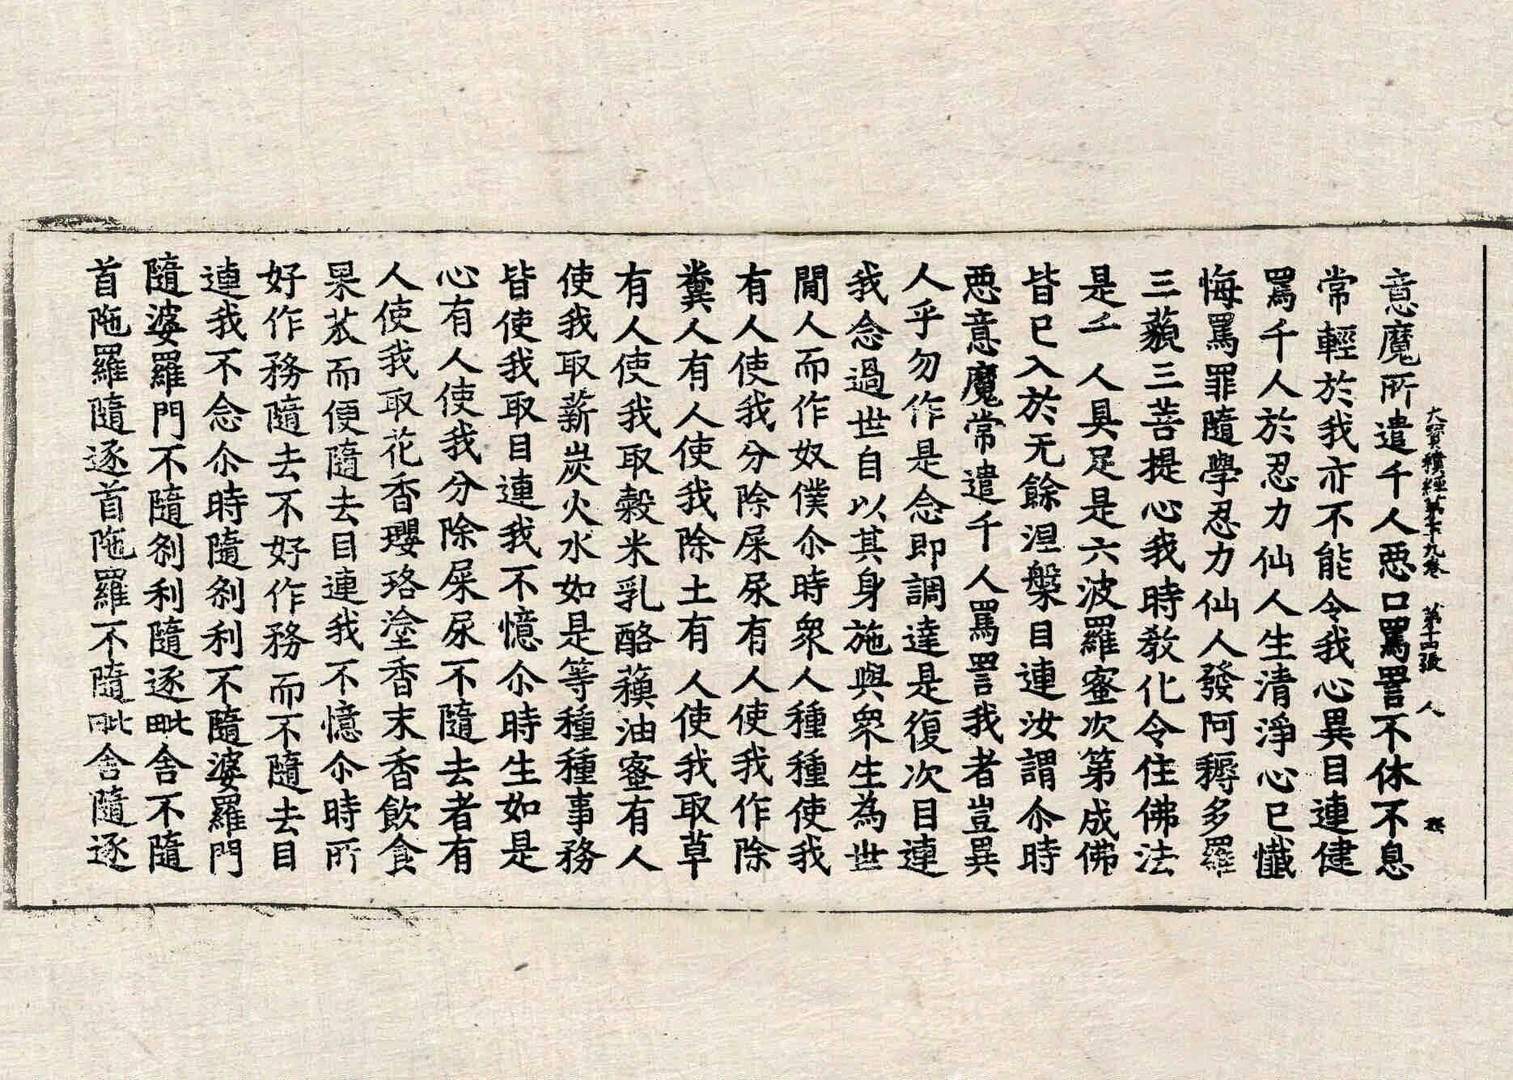 大寶積經第七十九卷 第十四張 人
意魔所遣千人悪口罵詈不休不息
常輕於我亦不能令我心異目連健
罵千人於忍力仙人生清淨心已懺
悔罵罪隨學忍力仙人發阿耨多羅
三藐三菩提心我時教化令住佛法
是千人具足是六波羅蜜次第成佛
皆已入於无餘涅槃目連汝謂尒時
悪意魔常遣千人罵詈我者豈異
人乎勿作是念即調達是復次目連
我念過世自以其身施與衆生為世
間人而作奴僕尒時衆人種種使我
有人使我分除屎尿有人使我作除
糞人有人使我除土有人使我取草
有人使我取穀米乳酪蘓油蜜有人
使我取薪炭火水如是等種種事務
皆使我取目連我不憶尒時生如是
心有人使我分除屎尿不隨去者有
人使我取花香瓔珞塗香末香飲食
果苽而便隨去目連我不憶尒時所
好作務隨去不好作務而不隨去目
連我不念尒時隨刹利不隨婆羅門
隨婆羅門不隨刹利隨逐毗舍不隨
首陁羅隨逐首陁羅不隨毗舍隨逐